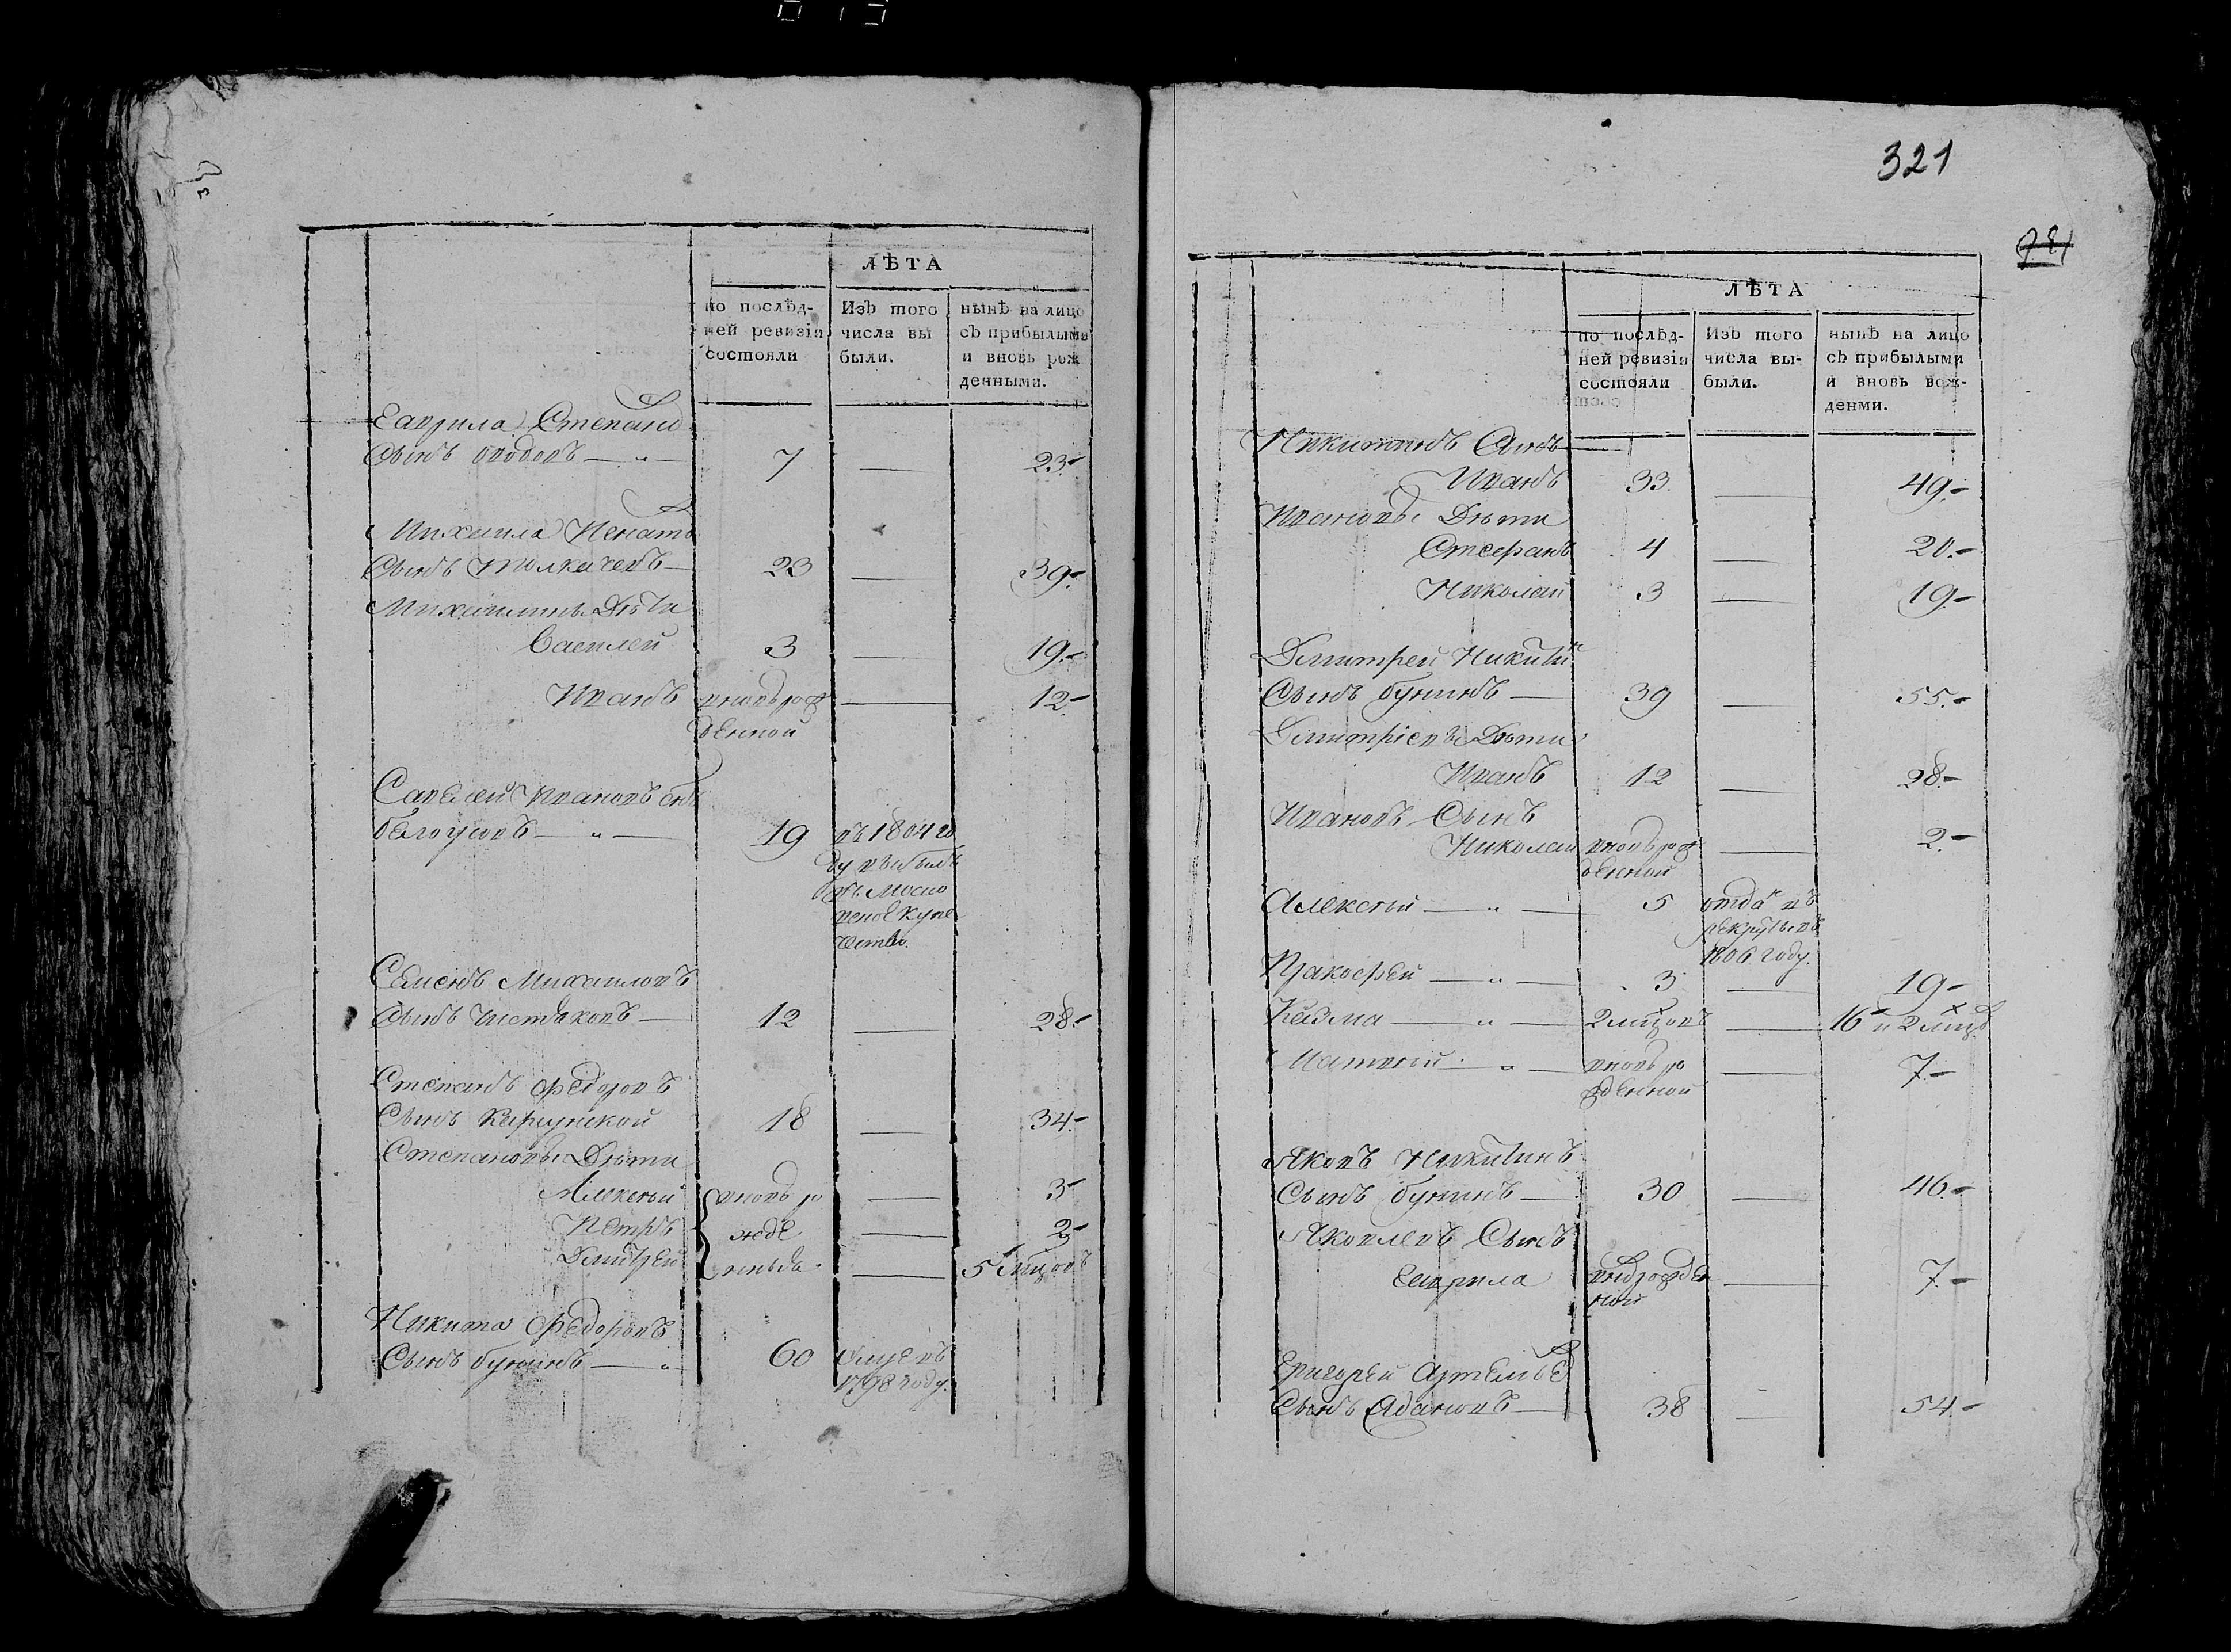 ЛѢТА
по послѣд-
ней ревизіи
состояли
Изъ того
числа вы
были.
нынѣ на лицо
съ прибылыми
и вновь рож
денными.
Гаврила Степано
Сынъ 7 — 23.-
Михаила Игнать
Сынъ Толкачевъ — 23 — 39.-
Михаилины Дѣти
Василей 3 — 19.-
Иванъ вновь рож — 12.-
денной
Савелей Ивановъ снъ
белоусовъ — „ — 19 въ 1804 го
ду выбылъ
въ моско
вское купе
чество.
Семенъ Михаиловъ
Сынъ Чистяковъ — 12 — 28.-
Степанъ Федоровъ
Сынъ 18 — 34.-
Степановы Дѣти
Алексѣй вновь ро — 3-
Петръ жде — 2-
Дмитрей нныя — 5 мцовъ
Никита Федоровъ
Сынъ бунинъ — „ 60 умре въ
1798 году.
321
ЛѢТА
по послѣд-
ней ревизіи
состояли
Изъ того
числа вы-
были.
нынѣ на лицо
съ прибылыми
и вновь рож-
денми.
Никитинъ Сынъ —
Иванъ 33. — 49.-
Ивановы Дѣти
Стефанъ 4 — 20.-
Николай 3 — 19.-
Дмитрей Никитин
Сынъ бунинъ — 39 — 55.-
Дмитріевы Дѣти
Иванъ 12 — 28.-
Ивановъ Сынъ
Николай вновь рож — 2.-
денной
Алексѣй — „ — 5 отда в
рекруты въ
1806 году.
Пракофей — „ — 3 — 19-
Козма — „ — 2 мцовъ — 16 и 2 мцъ
Матвѣй — „ — вновь ро — 7.-
жденной
Яковъ Никитинъ
Сынъ бунинъ — 30 — 46.-
Яковлевъ Сынъ
Гаврила внорожде — 7.-
ной
Григорей Артемье
Сынъ 38 — 54.-